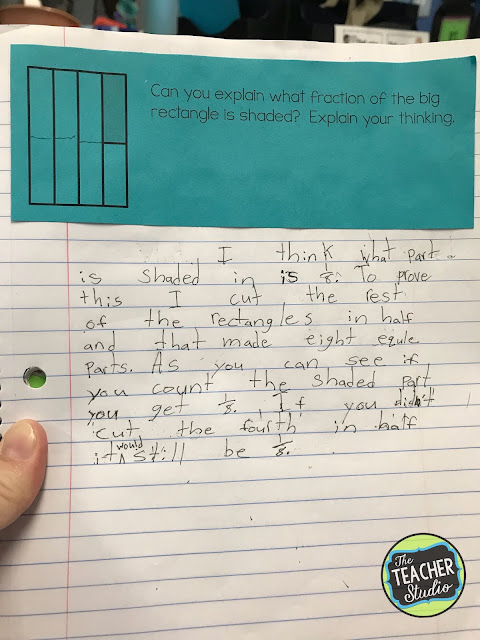 Can you explain what fraction of the big
rectangle is shaded? Explain your thinking.
I think what part
is shaded in is 1/8. To prove
this I cut the rest
of the rectangles in half
and that made eight equle
parts. As you can see if
you count the shaded part
you get 1/8. If you didn't
cut the fourth in half
it would still be 1/8.
The
TEACHER
Studio